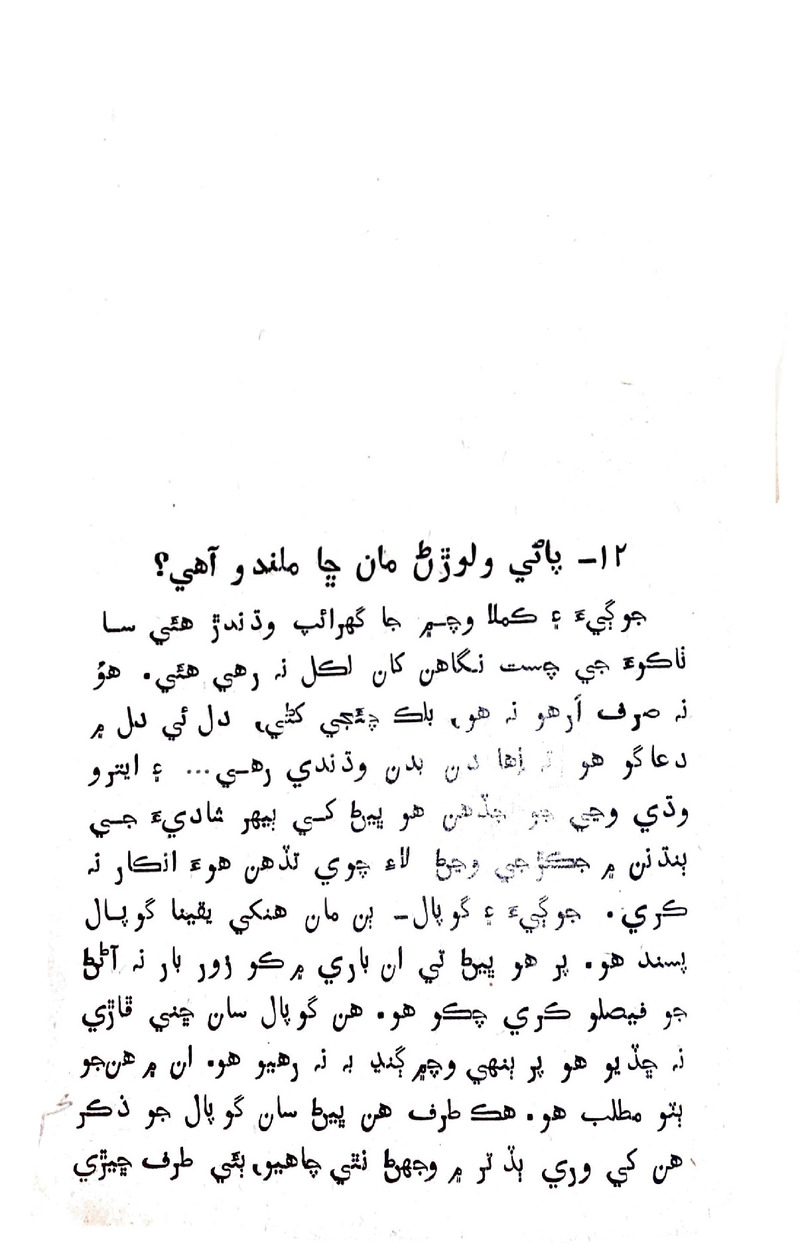 ١٢– پاڻي ولوڙڻ مان ڇا ملندو آهي؟
جوڳيءَ ۽ ڪملا وچ۾ جا گهرائپ وڌندڙ هئي سا
ٺاڪرءَ جي چست نگاهن کان لڪل نہ رهي هئي. هوُ
نہ صرف آرهو نہ هو، بلڪ چڱيءَ دل ئي دل ۾
دعاگو هو تہ اِها دن بدن وڌندي رهي... ۽ ايترو
وڌي وڃي جو جڏهن هو ڀيڻ کي ٻيهر شاديءَ جي
ٻنڌنن ۾ جڪڙجي وڃڻ لاءِ چوي تڏهن هوءَ انڪار نہ
ڪري. جوڳيءَ ۽ گوپال– ٻن مان هنکي يقينا گوپال
پسند هو. پر هو ڀيڻ تي ان باري ۾ ڪو زور بار نہ آڻڻ
جو فيصلو ڪري چڪو هو. هن گوپال سان ڇني ڦاڙي
نہ ڇڏيو هو پر ٻنهي وچ۾ ڳنڍ بہ نہ رهيو هو. ان ۾ هن‌جو
ٻٽو مطلب هو. هڪ طرف هن ڀيڻ سان گوپال جو ذڪر
هن کي وري ٻڏتر ۾ وجهڻ نٿي چاهيو، ٻئي طرف ڇيڙي